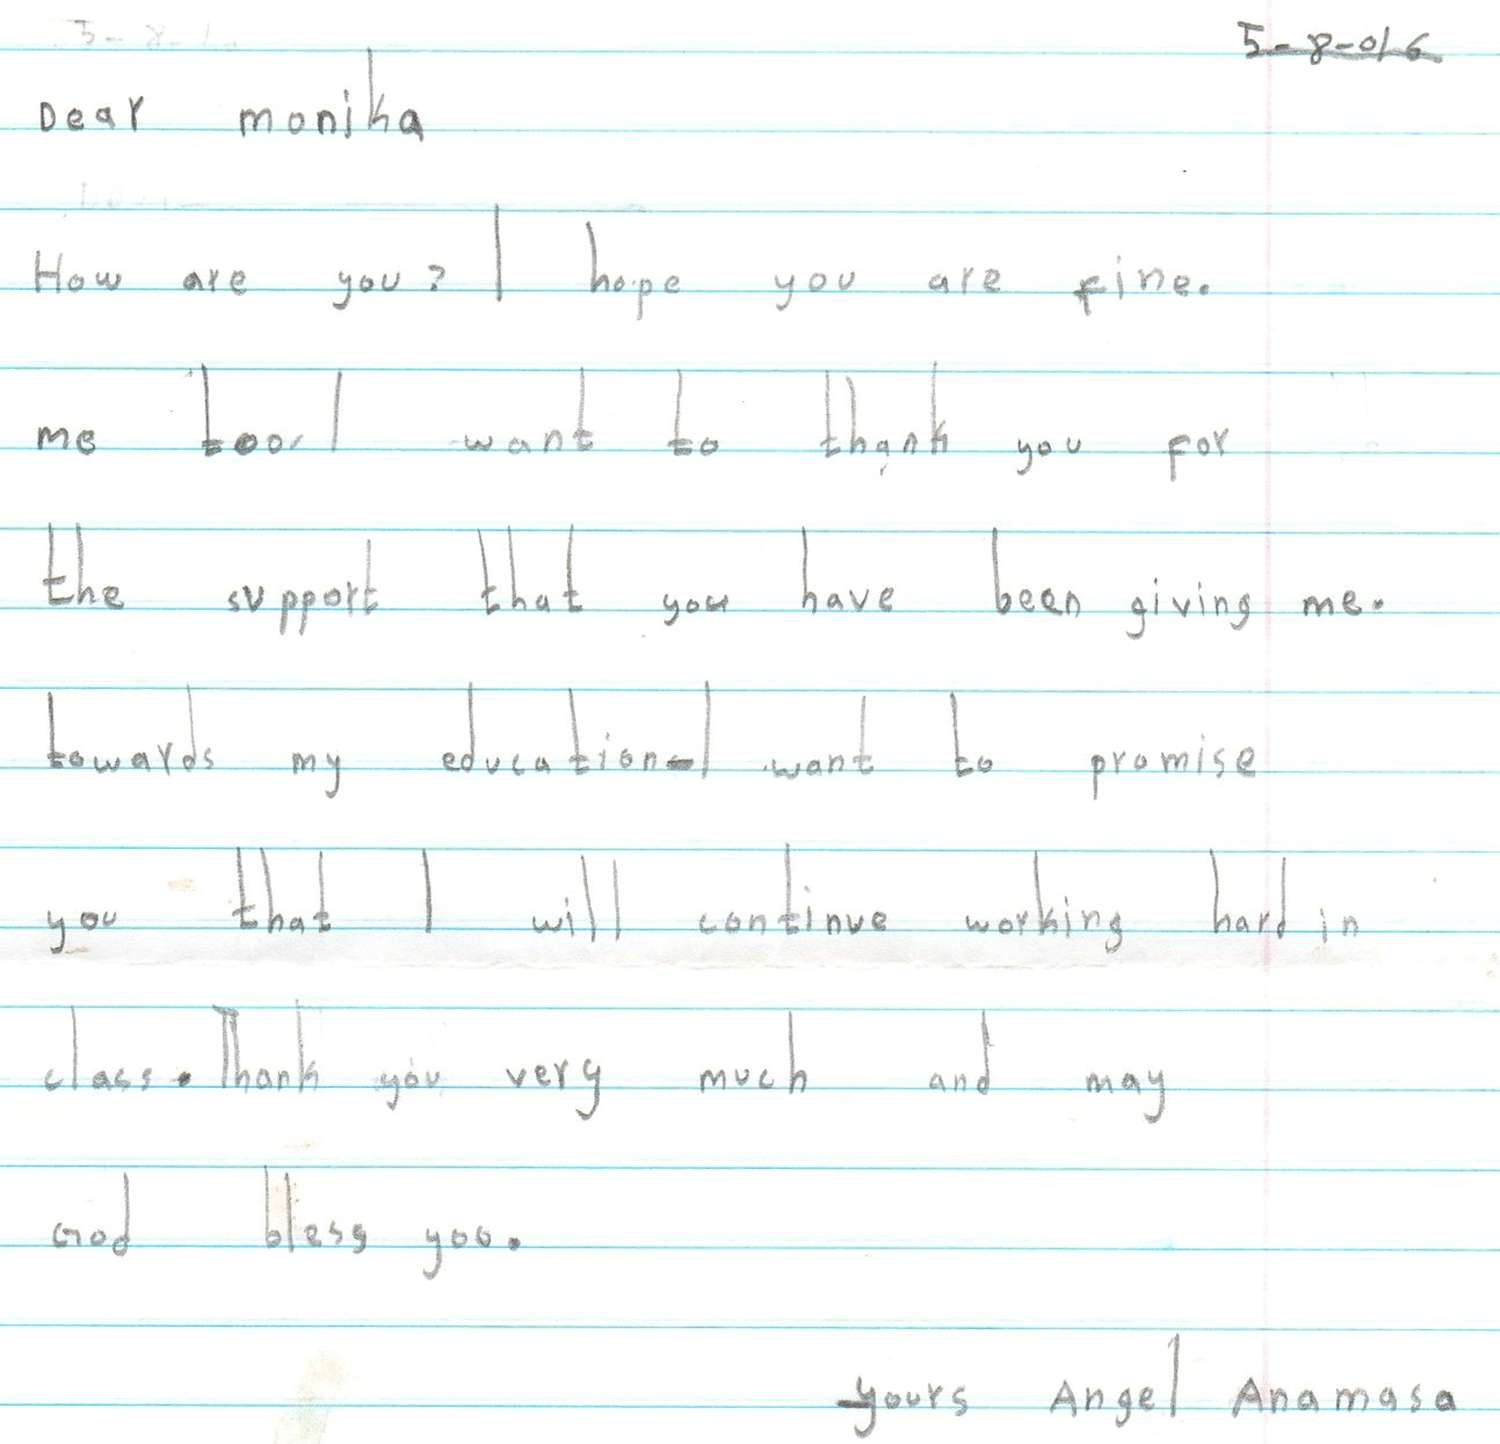 5-8-016
Dear monika
How are you? I hope you are fine.
me too. I want to thank you for
the support that you have been giving me.
towards my education-I want to promise
you that I will continue working hard in
class. Thank you very much and may
God bless you.
yours Angel Anamasa